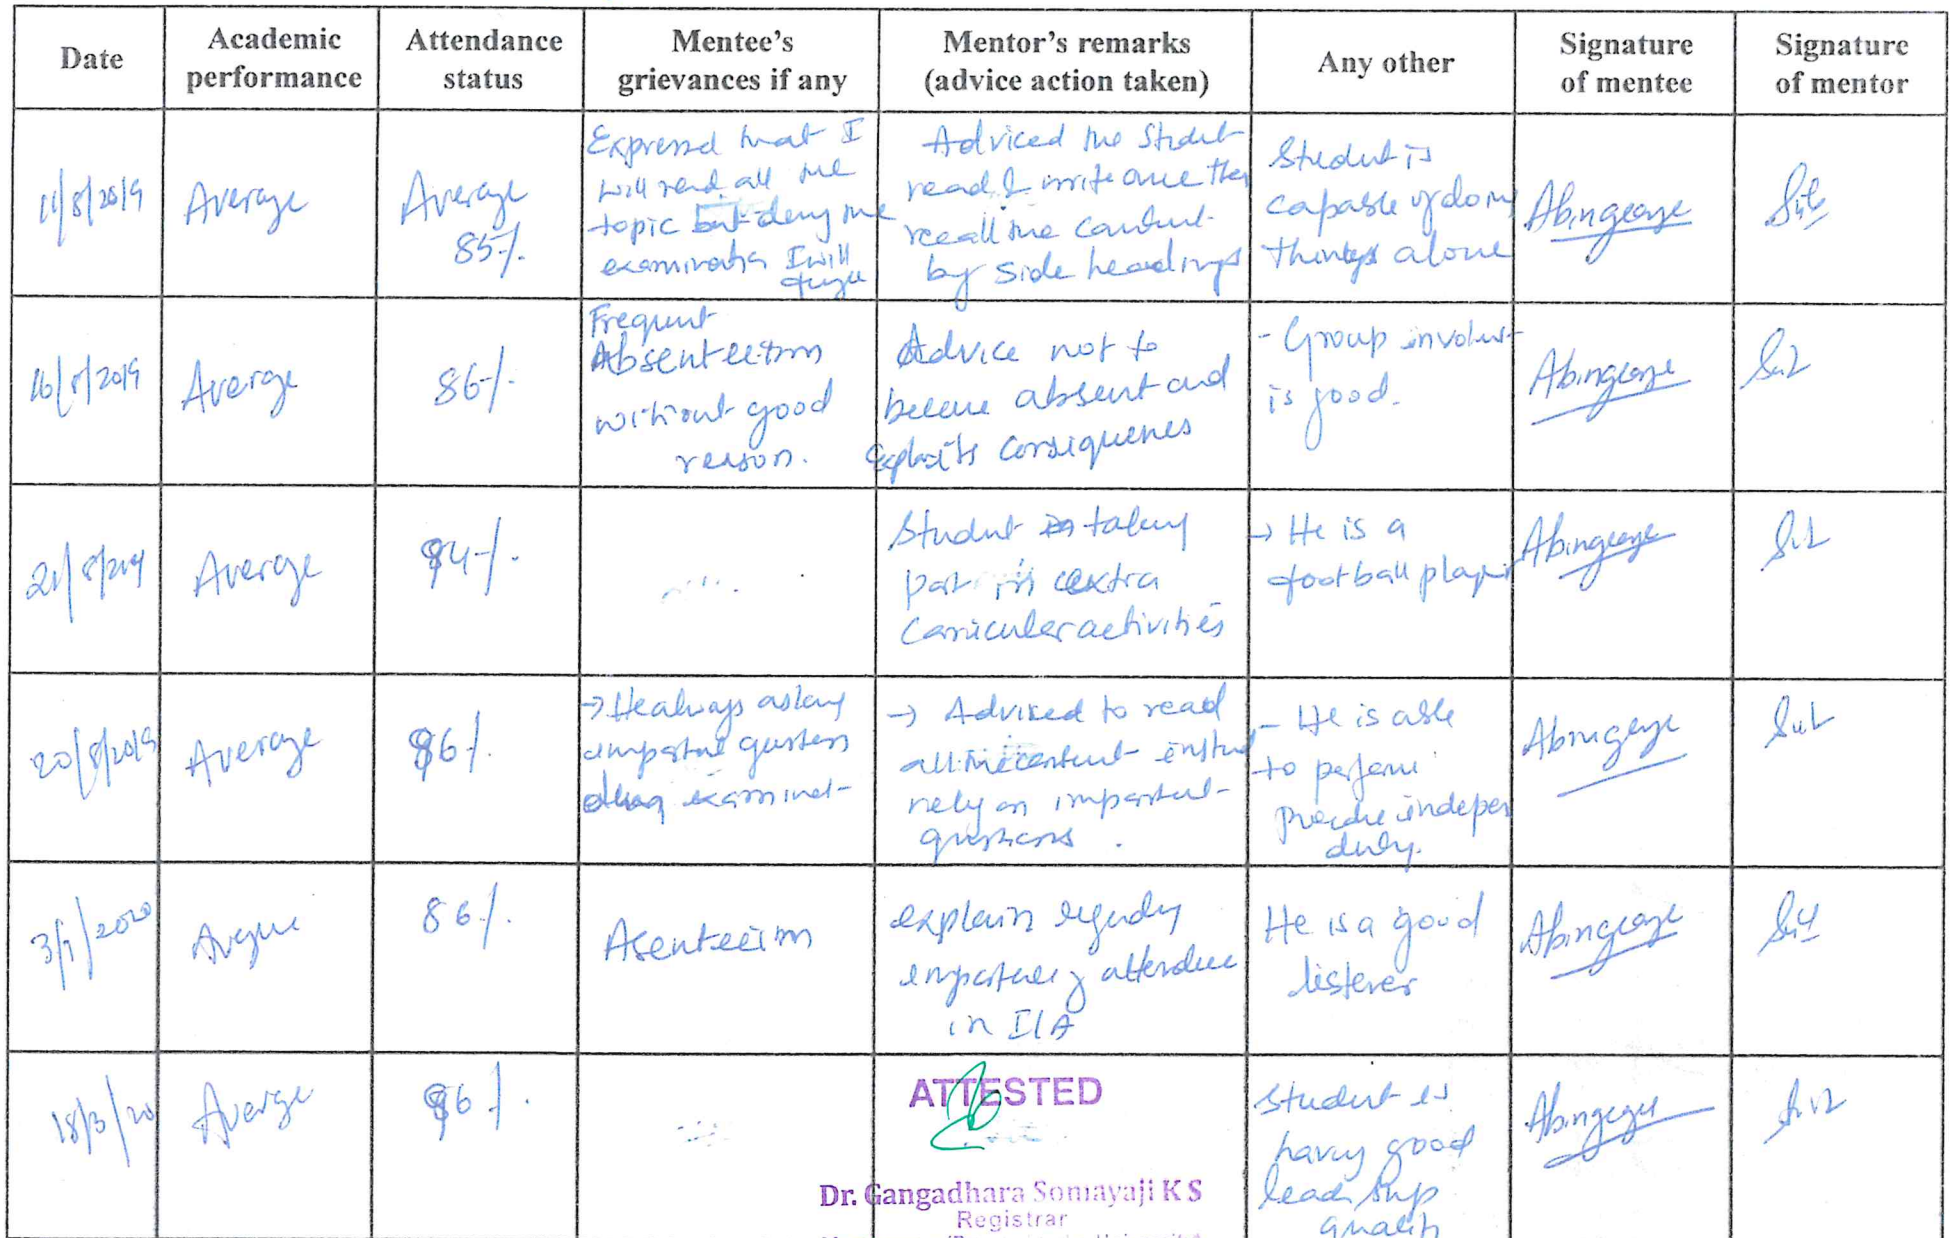 Date
Academic performance
Attendance status
Mentee's grievances if any
Mentor's remarks (advice action taken)
Any other
Signature of mentee
Signature of mentor
11/8/2019
Average
Average
85%
Expressed that I
will read all the
topic but
examination I will
Adviced the Student
read & write once then
recall the content
by side headings
Student is
capable of doing
things alone
Abingeorge
16/8/2019
Average
86%
Frequent
Absenteeism
without good
reason.
Advice not to
become absent and
consiquences
- Group involvet
is good.
Abingeorge
Average
84%
Student taking
part in extra
curriculer activities
→ He is a
football player
Abingeorge
20/8/2019
Average
86%
→ He always asking
important questions
examinet-
→ Advised to read
all the content
rely on important
questions.
- He is able
to perform
Abingeorge
3/1/2020
86%
Asenteeism
explain
attendance
in I/A
He is a good
listener
Abingeorge
18/3/20
Average
86%
ATTESTED
Dr. Gangadhara Somayaji K S
Registrar
Student is
having good
leadership
qualit
Abingeorge